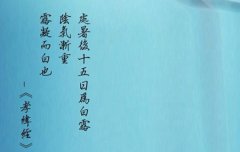 處暑後十五日為白露
陰氣漸重
露凝而白也
-《孝緯經》